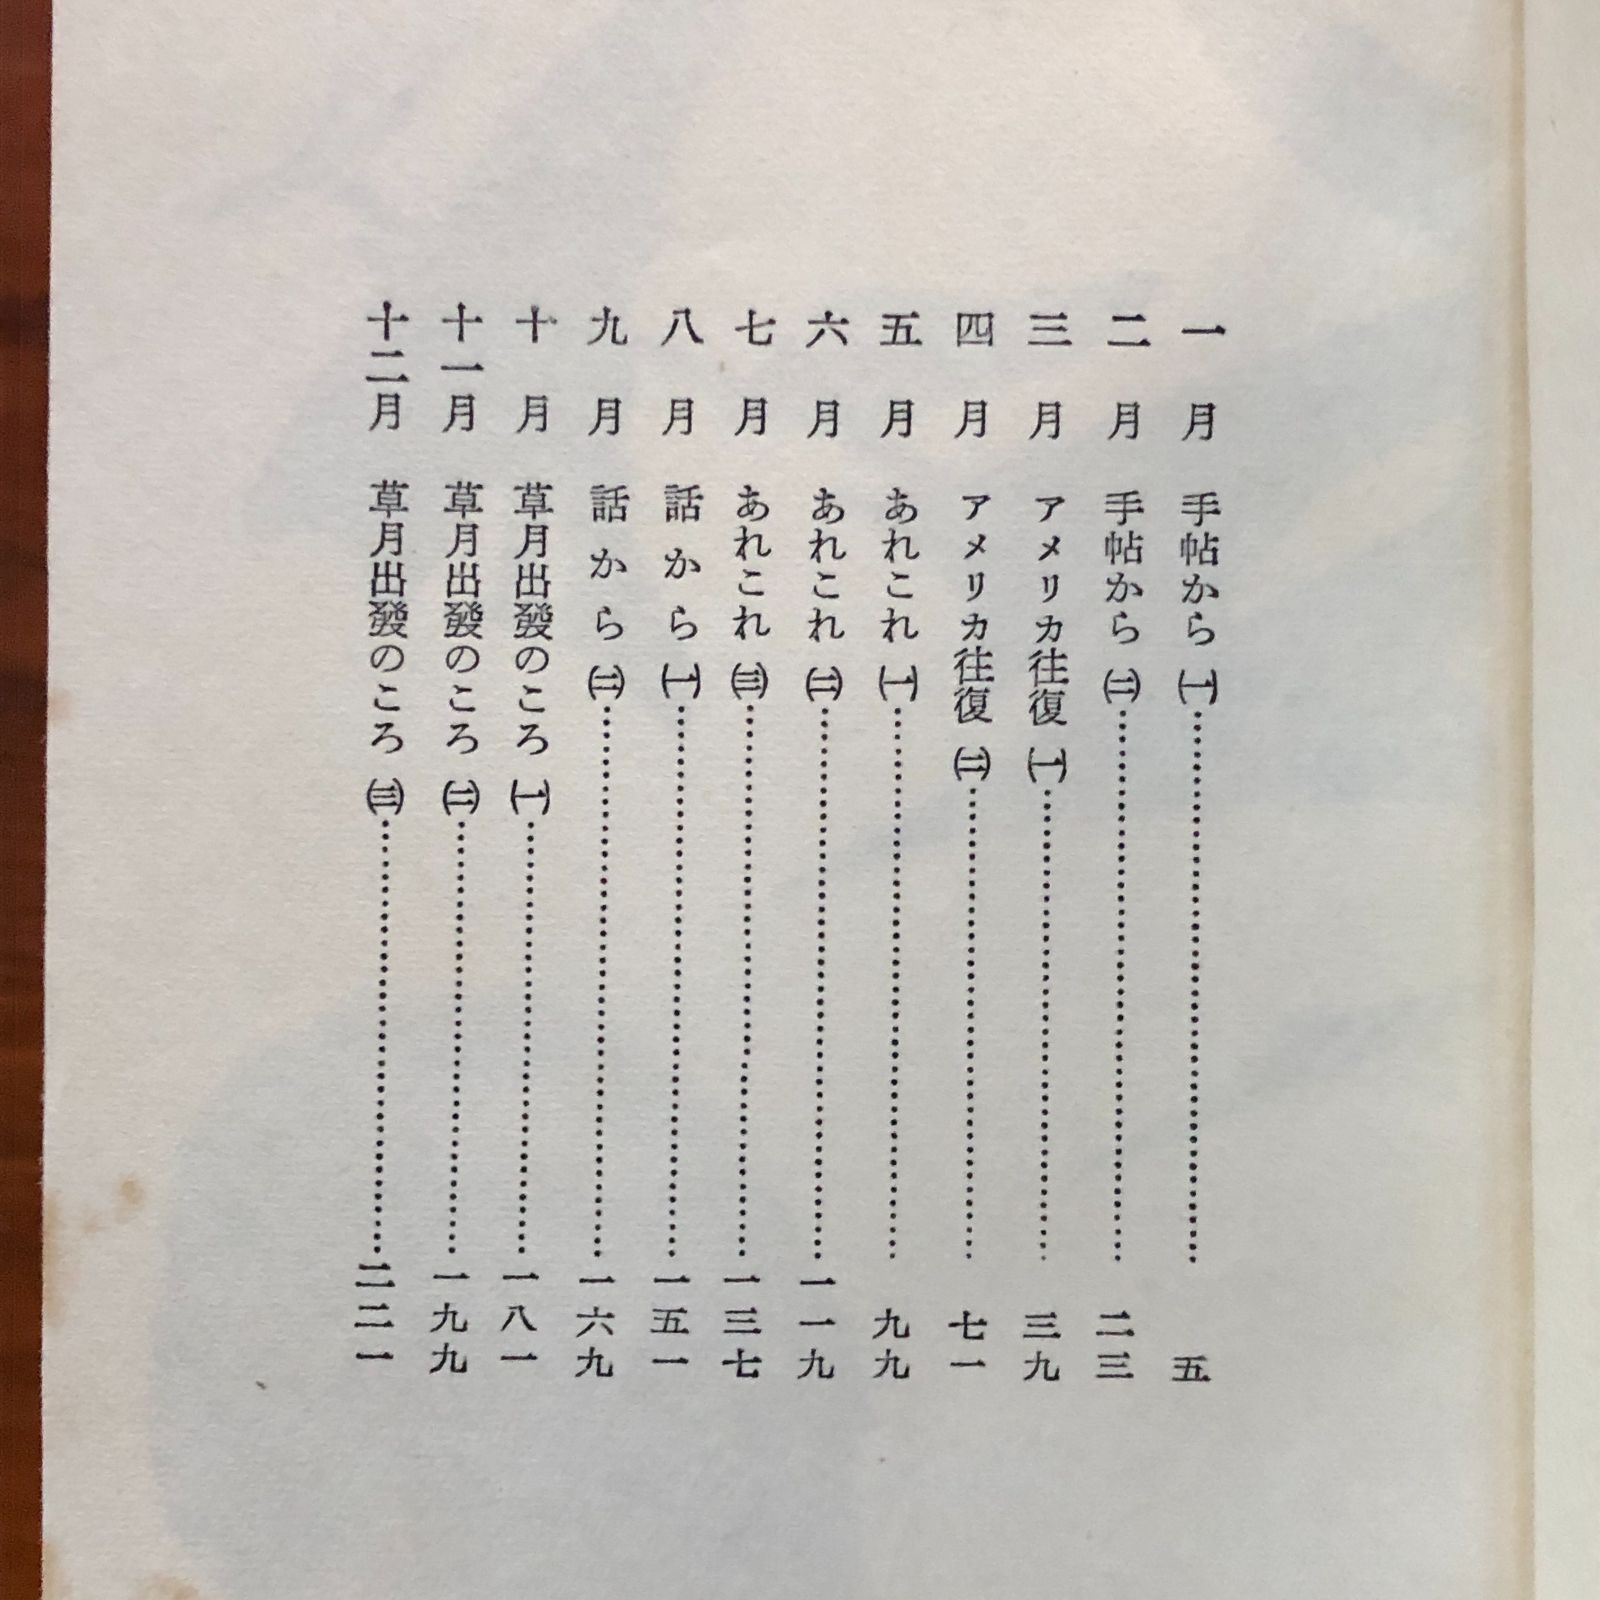 一月 手帖から(一)……五
二月 手帖から(二)……二三
三月 アメリカ往復(一)……三九
四月 アメリカ往復(二)……七一
五月 あれこれ(一)……九九
六月 あれこれ(二)……一一九
七月 あれこれ(三)……一三七
八月 話から(一)……一五一
九月 話から(二)……一六九
十月 草月出發のころ(一)……一八一
十一月 草月出發のころ(二)……一九九
十二月 草月出發のころ(三)……二二一